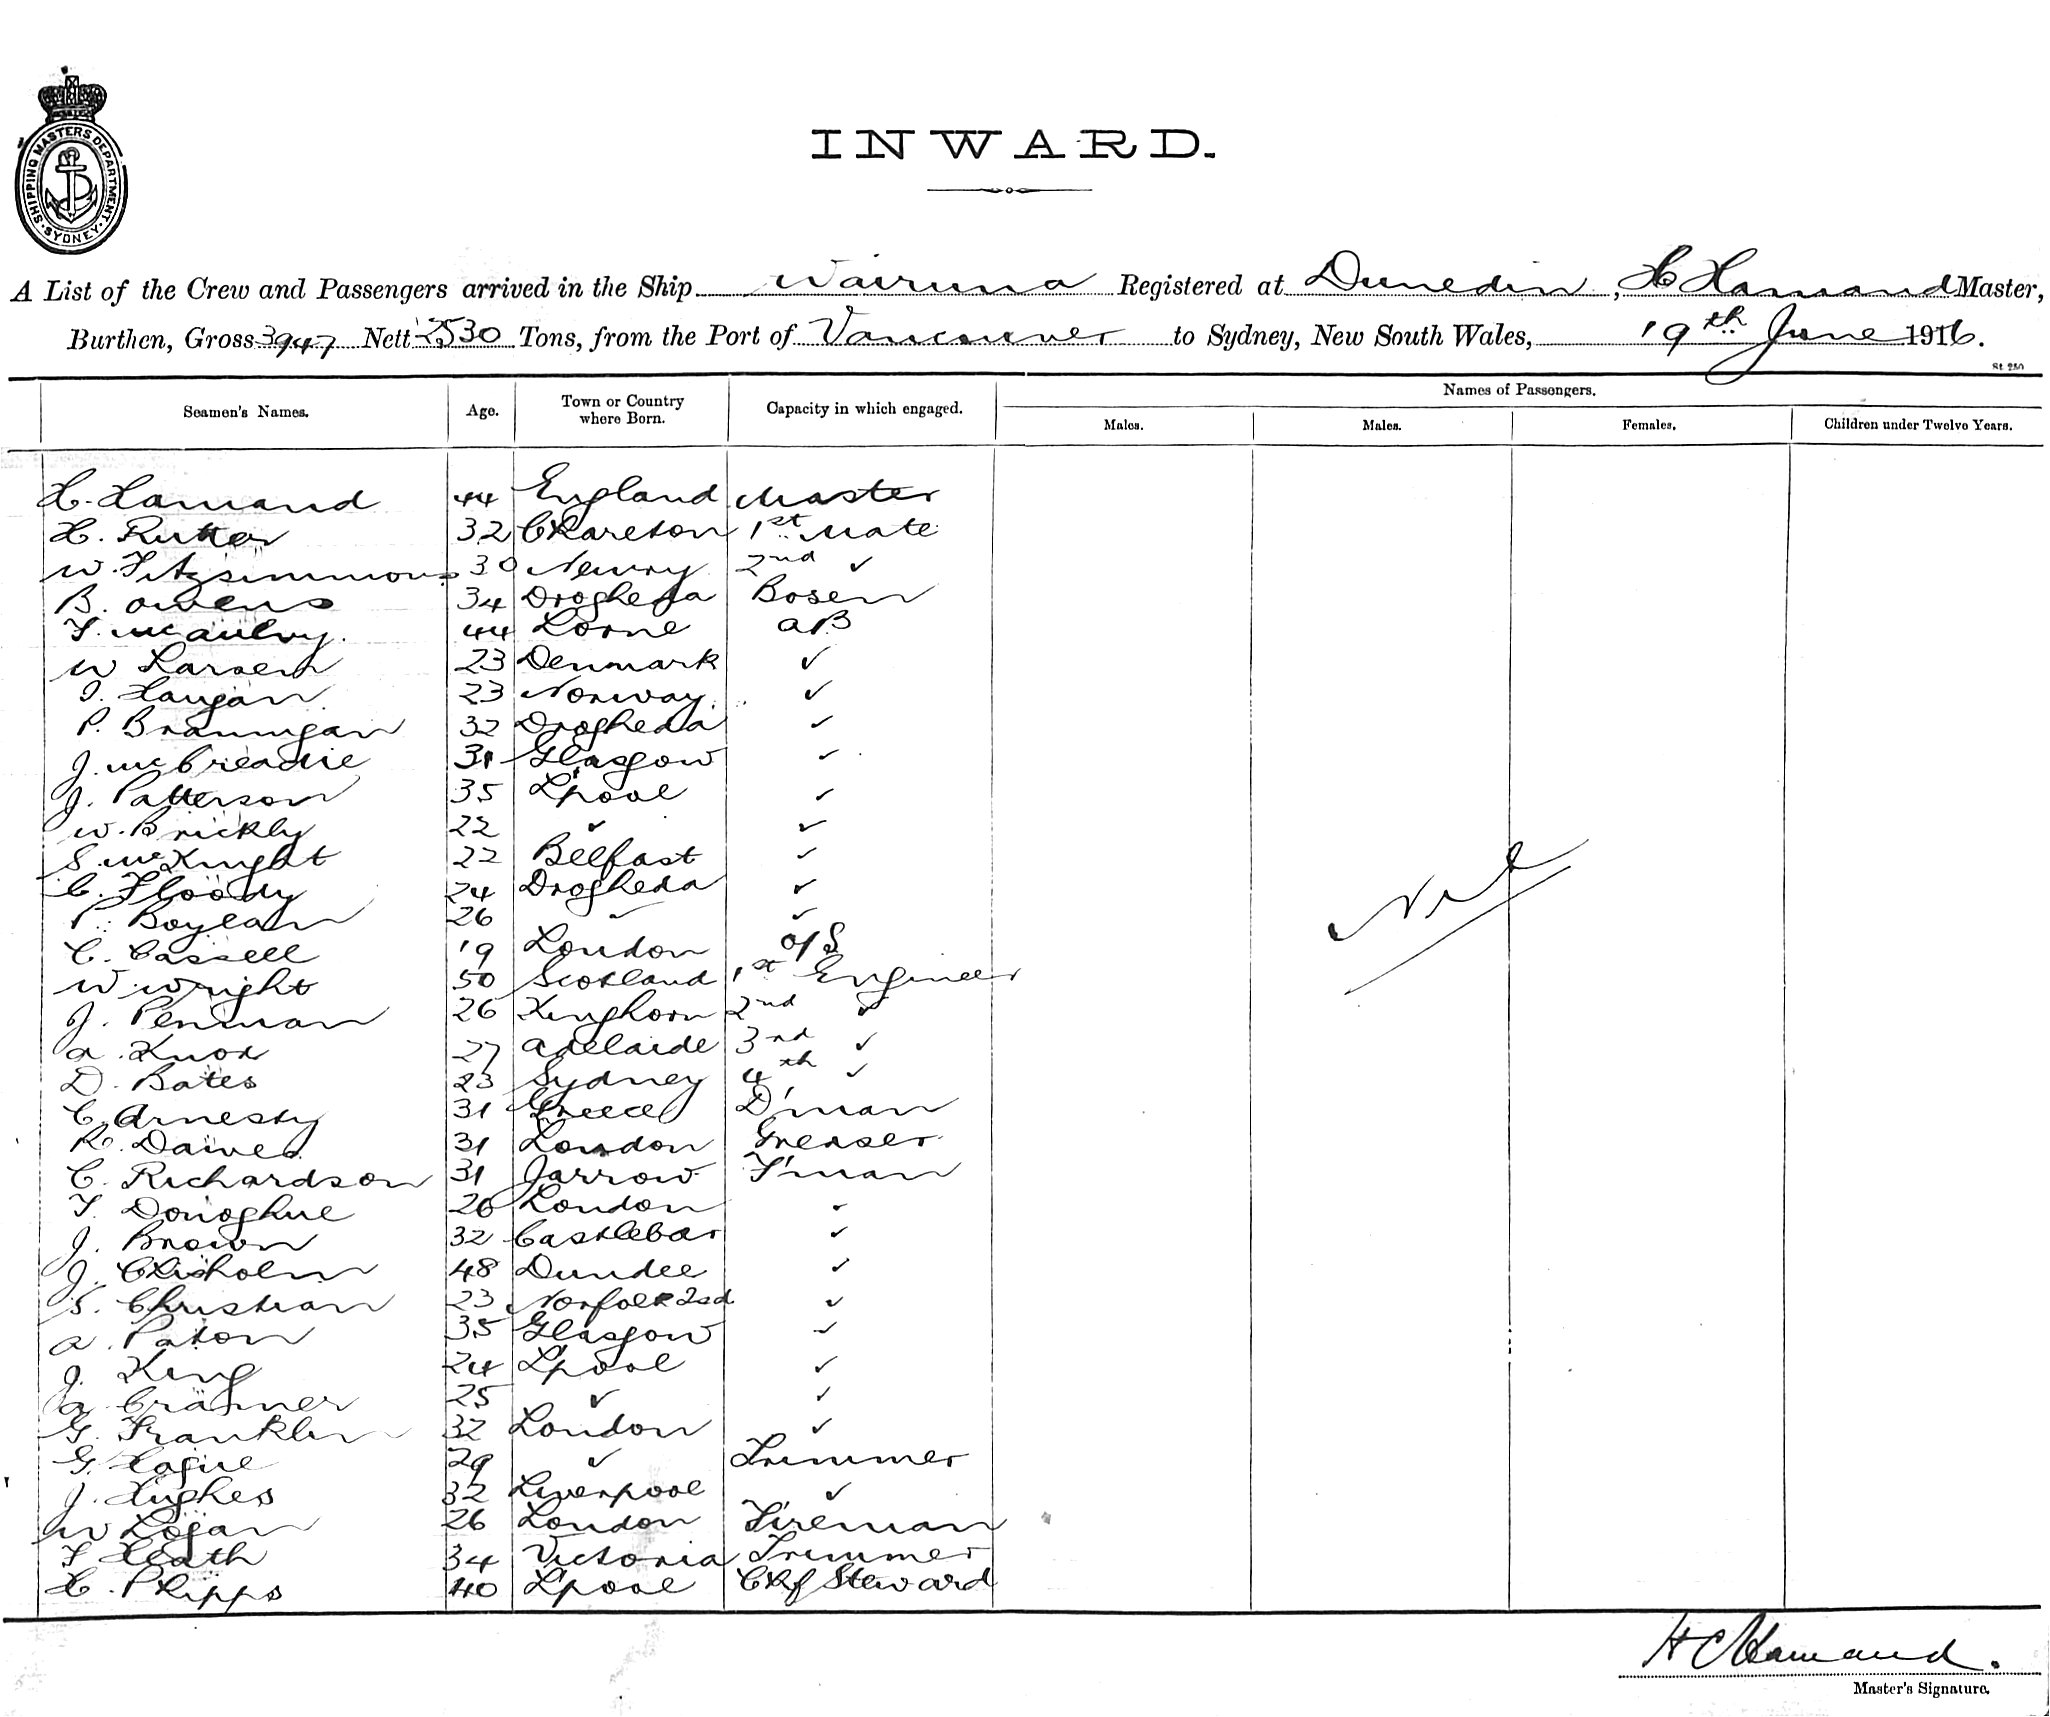 SHIPPING MASTERS DEPARTMENT
SYDNEY
INWARD.
A List of the Crew and Passengers arrived in the Ship Wairuna Registered at Dunedin, H Hamand Master,
Burthen, Gross 3947 Nett 2530 Tons, from the Port of Vancouver to Sydney, New South Wales, 19th June 1916.
St 250
Seamen's Names. Age. Town or Country where Born. Capacity in which engaged. Names of Passengers.
Males. Males. Females. Children under Twelve Years.
H. Hamand 44 England Master
H. Rutter 32 1st Mate
W. Fitzsimmons 30 Newry 2nd ✓
B. Owens 34 Drogheda Bosen
T. McAulvy. 44 Lorne AB
W Larsen 23 Denmark ✓
I. Haugan 23 Norway. ✓
P. Brannigan 32 Drogheda ✓
J. McCreadie 31 Glasgow ✓
J. Patterson 35 L'pool ✓
W. Brickly 22 ✓ ✓
S. McKnight 22 Belfast ✓
C. Floody 24 Drogheda ✓
P. Boylan 26 ✓ ✓
C. Cassell 19 London O/S
W. Wright 50 Scotland 1st Engineer
J. Penman 26 Kinghorn 2nd ✓
A. Knox 27 Adelaide 3rd ✓
D. Bates 23 Sydney 4th ✓
C. Arnesty 31 Greece D'man
R. Dawes 31 London Greaser
C. Richardson 31 Jarrow F'man
T. Donoghue 26 London ✓
J. Brown 32 Castlebar ✓
J. Chisholm 48 Dundee ✓
S. Christian 23 Norfolk Isd ✓
A. Paton 35 Glasgow ✓
J. King 24 L'pool ✓
A. Cranmer 25 ✓ ✓
G. Franklin 32 London ✓
G. Hague 29 ✓ Trimmer
J. Hughes 32 Liverpool ✓
W Logan 26 London Fireman
T Heath 34 Victoria Trimmer
H. Phipps 40 L'pool Chf Steward
Nil
H C Hamand.
Master's Signature.